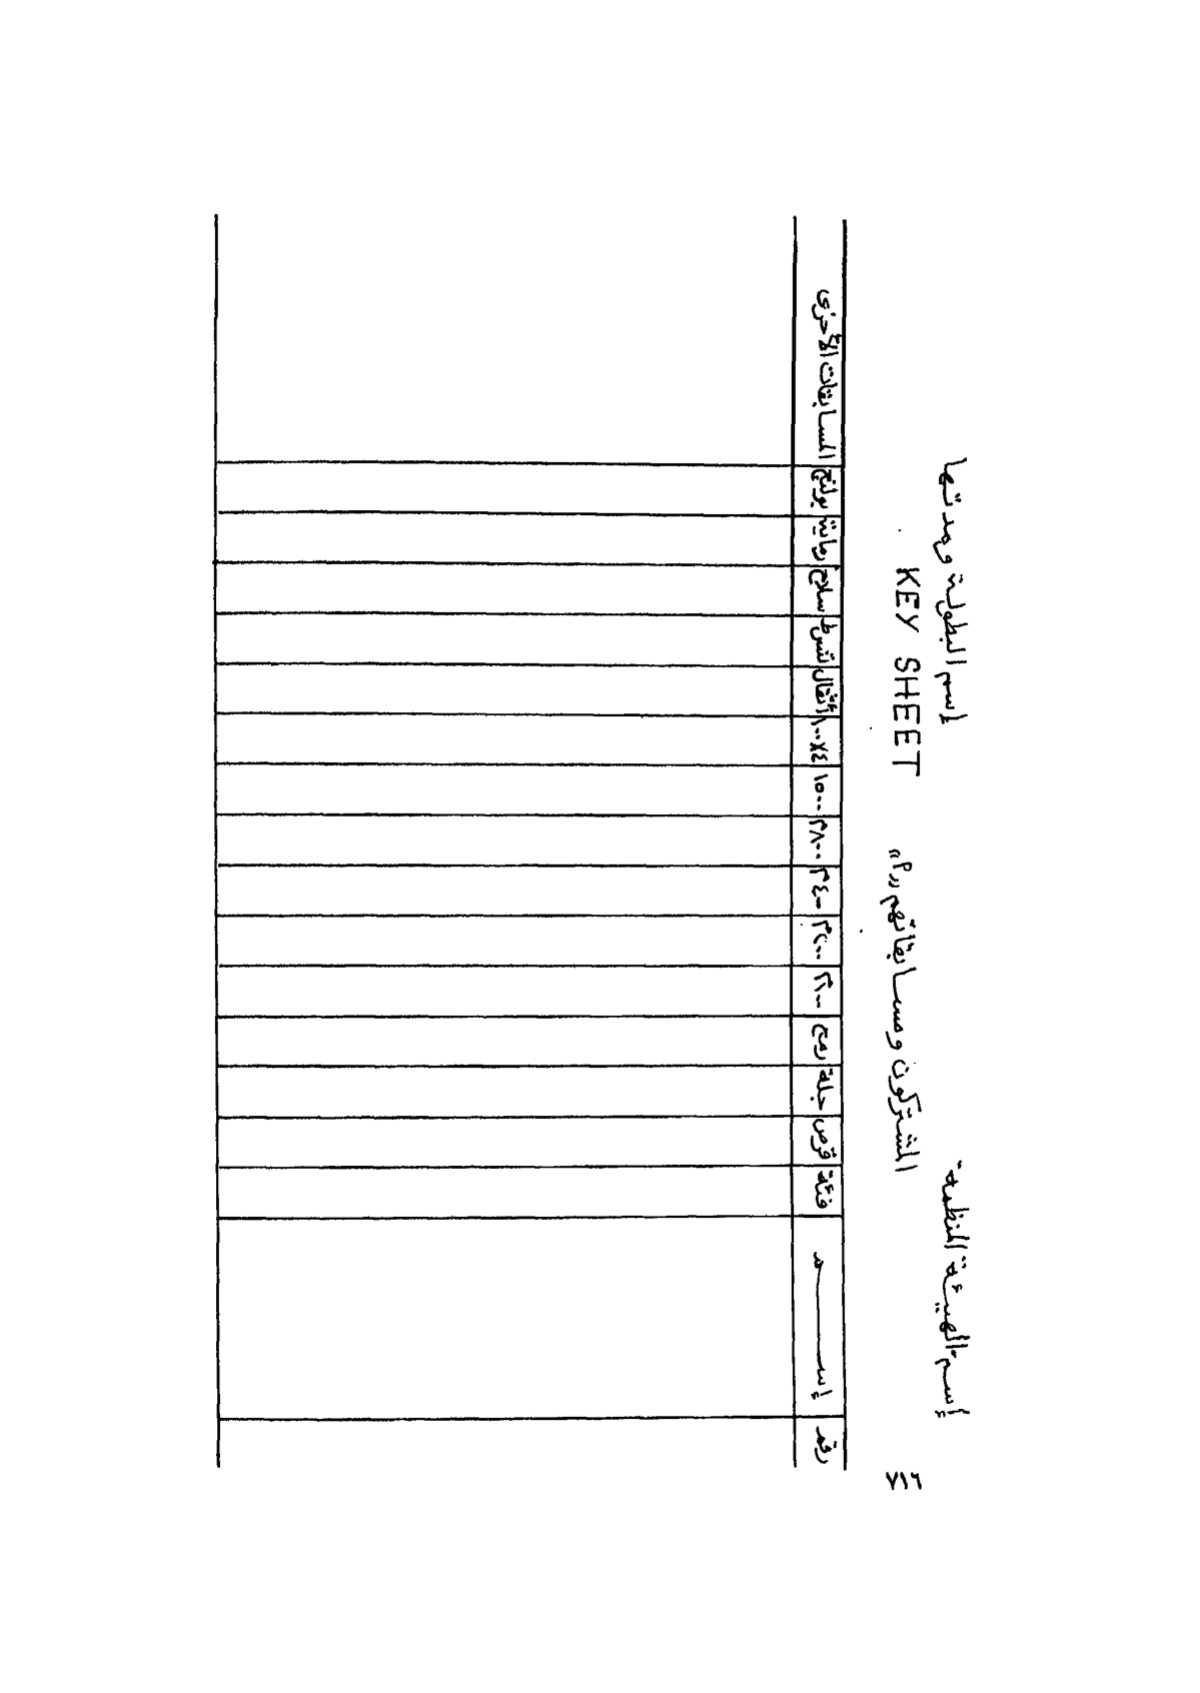 إسم الهيئة المنظمة إسم البطولة ومدتها
المشتركون ومسابقاتهم «م» KEY SHEET
رقم إســـــم فئة قرص جلة رمح ١٠٠م ٢٠٠م ٤٠٠م ٨٠٠م ١٥٠٠ ٤×١٠٠ أثقال شرط سلاح رماية بولنج المسابقات الأخرى
٧١٦